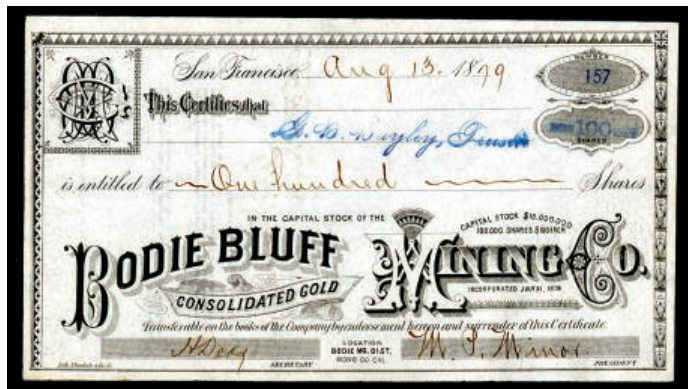 San Francisco Aug 13. 1879
NUMBER
157
This Certifies that
G. B. Bayley, Trustee
100
SHARES
is entitled to One hundred Shares
IN THE CAPITAL STOCK OF THE
CAPITAL STOCK $10,000,000
100,000 SHARES $100 EACH
BODIE BLUFF
CONSOLIDATED GOLD
MINING CO.
INCORPORATED
Transferable on the books of the Company by endorsement hereon and surrender of this Certificate
LOCATION
BODIE MG. DIST.
MONO CO. CAL.
SECRETARY
M. S. Minor.
PRESIDENT